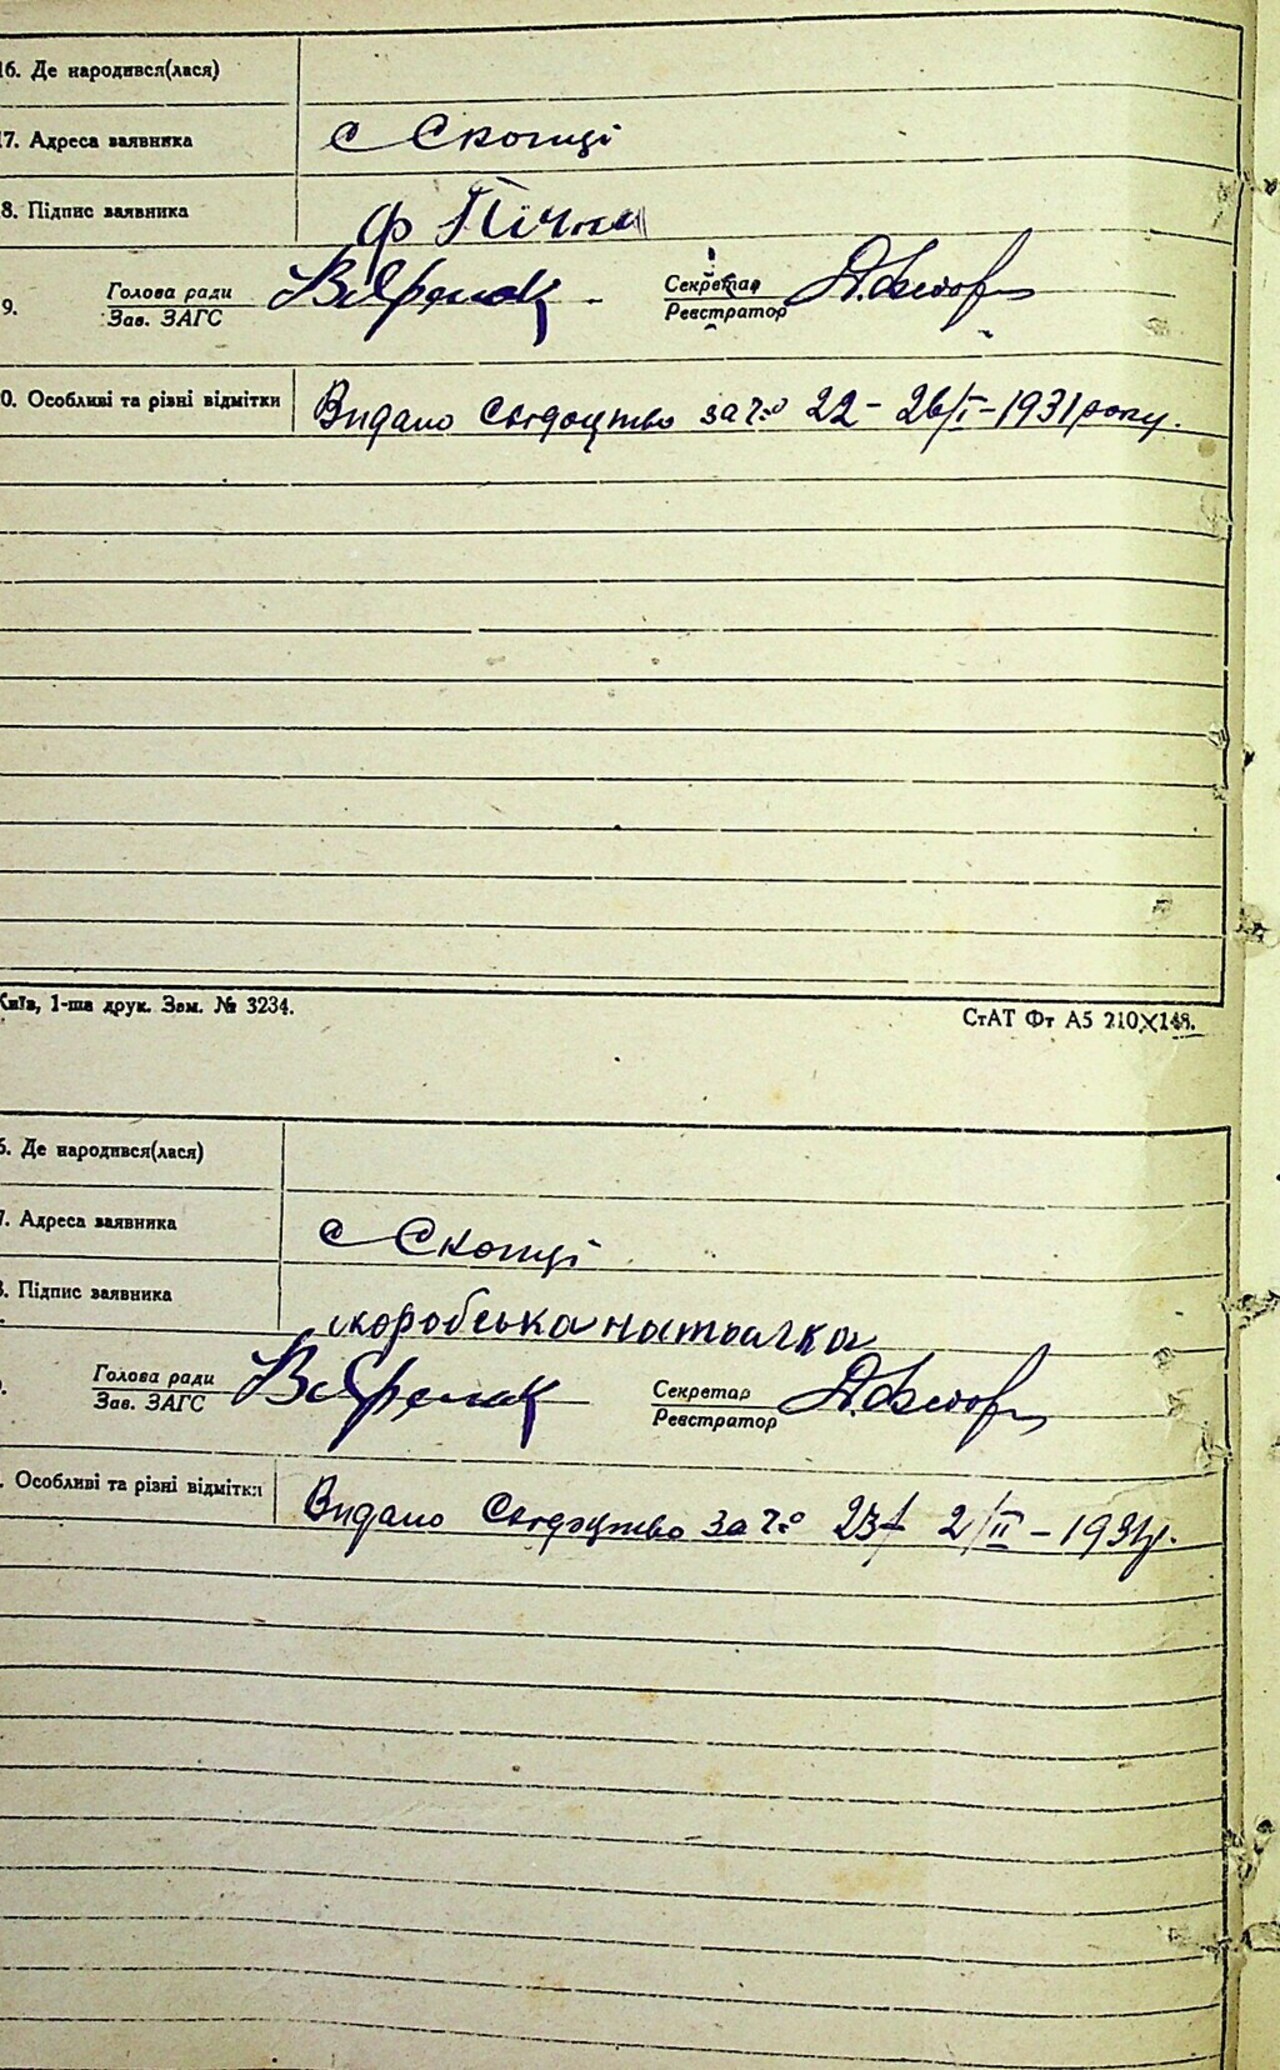 16. Де народився(лася)
17. Адреса заявника с Скопці
8. Підпис заявника ф Пічка
9. Голова ради Секретар
Зав. ЗАГС Реєстратор
0. Особливі та різні відмітки Видано Свідоцтво за ч:о 22 - 26/I - 1931 року.
Київ, 1-ша друк. Зам. № 3234.
СтАТ Фт А5 210×148.
6. Де народився(лася)
7. Адреса заявника с Скопці
8. Підпис заявника скоробська наталка
Голова ради Секретар
Зав. ЗАГС Реєстратор
. Особливі та різні відмітки Видано Свідоцтво за ч:о 23 2/II - 1931р.